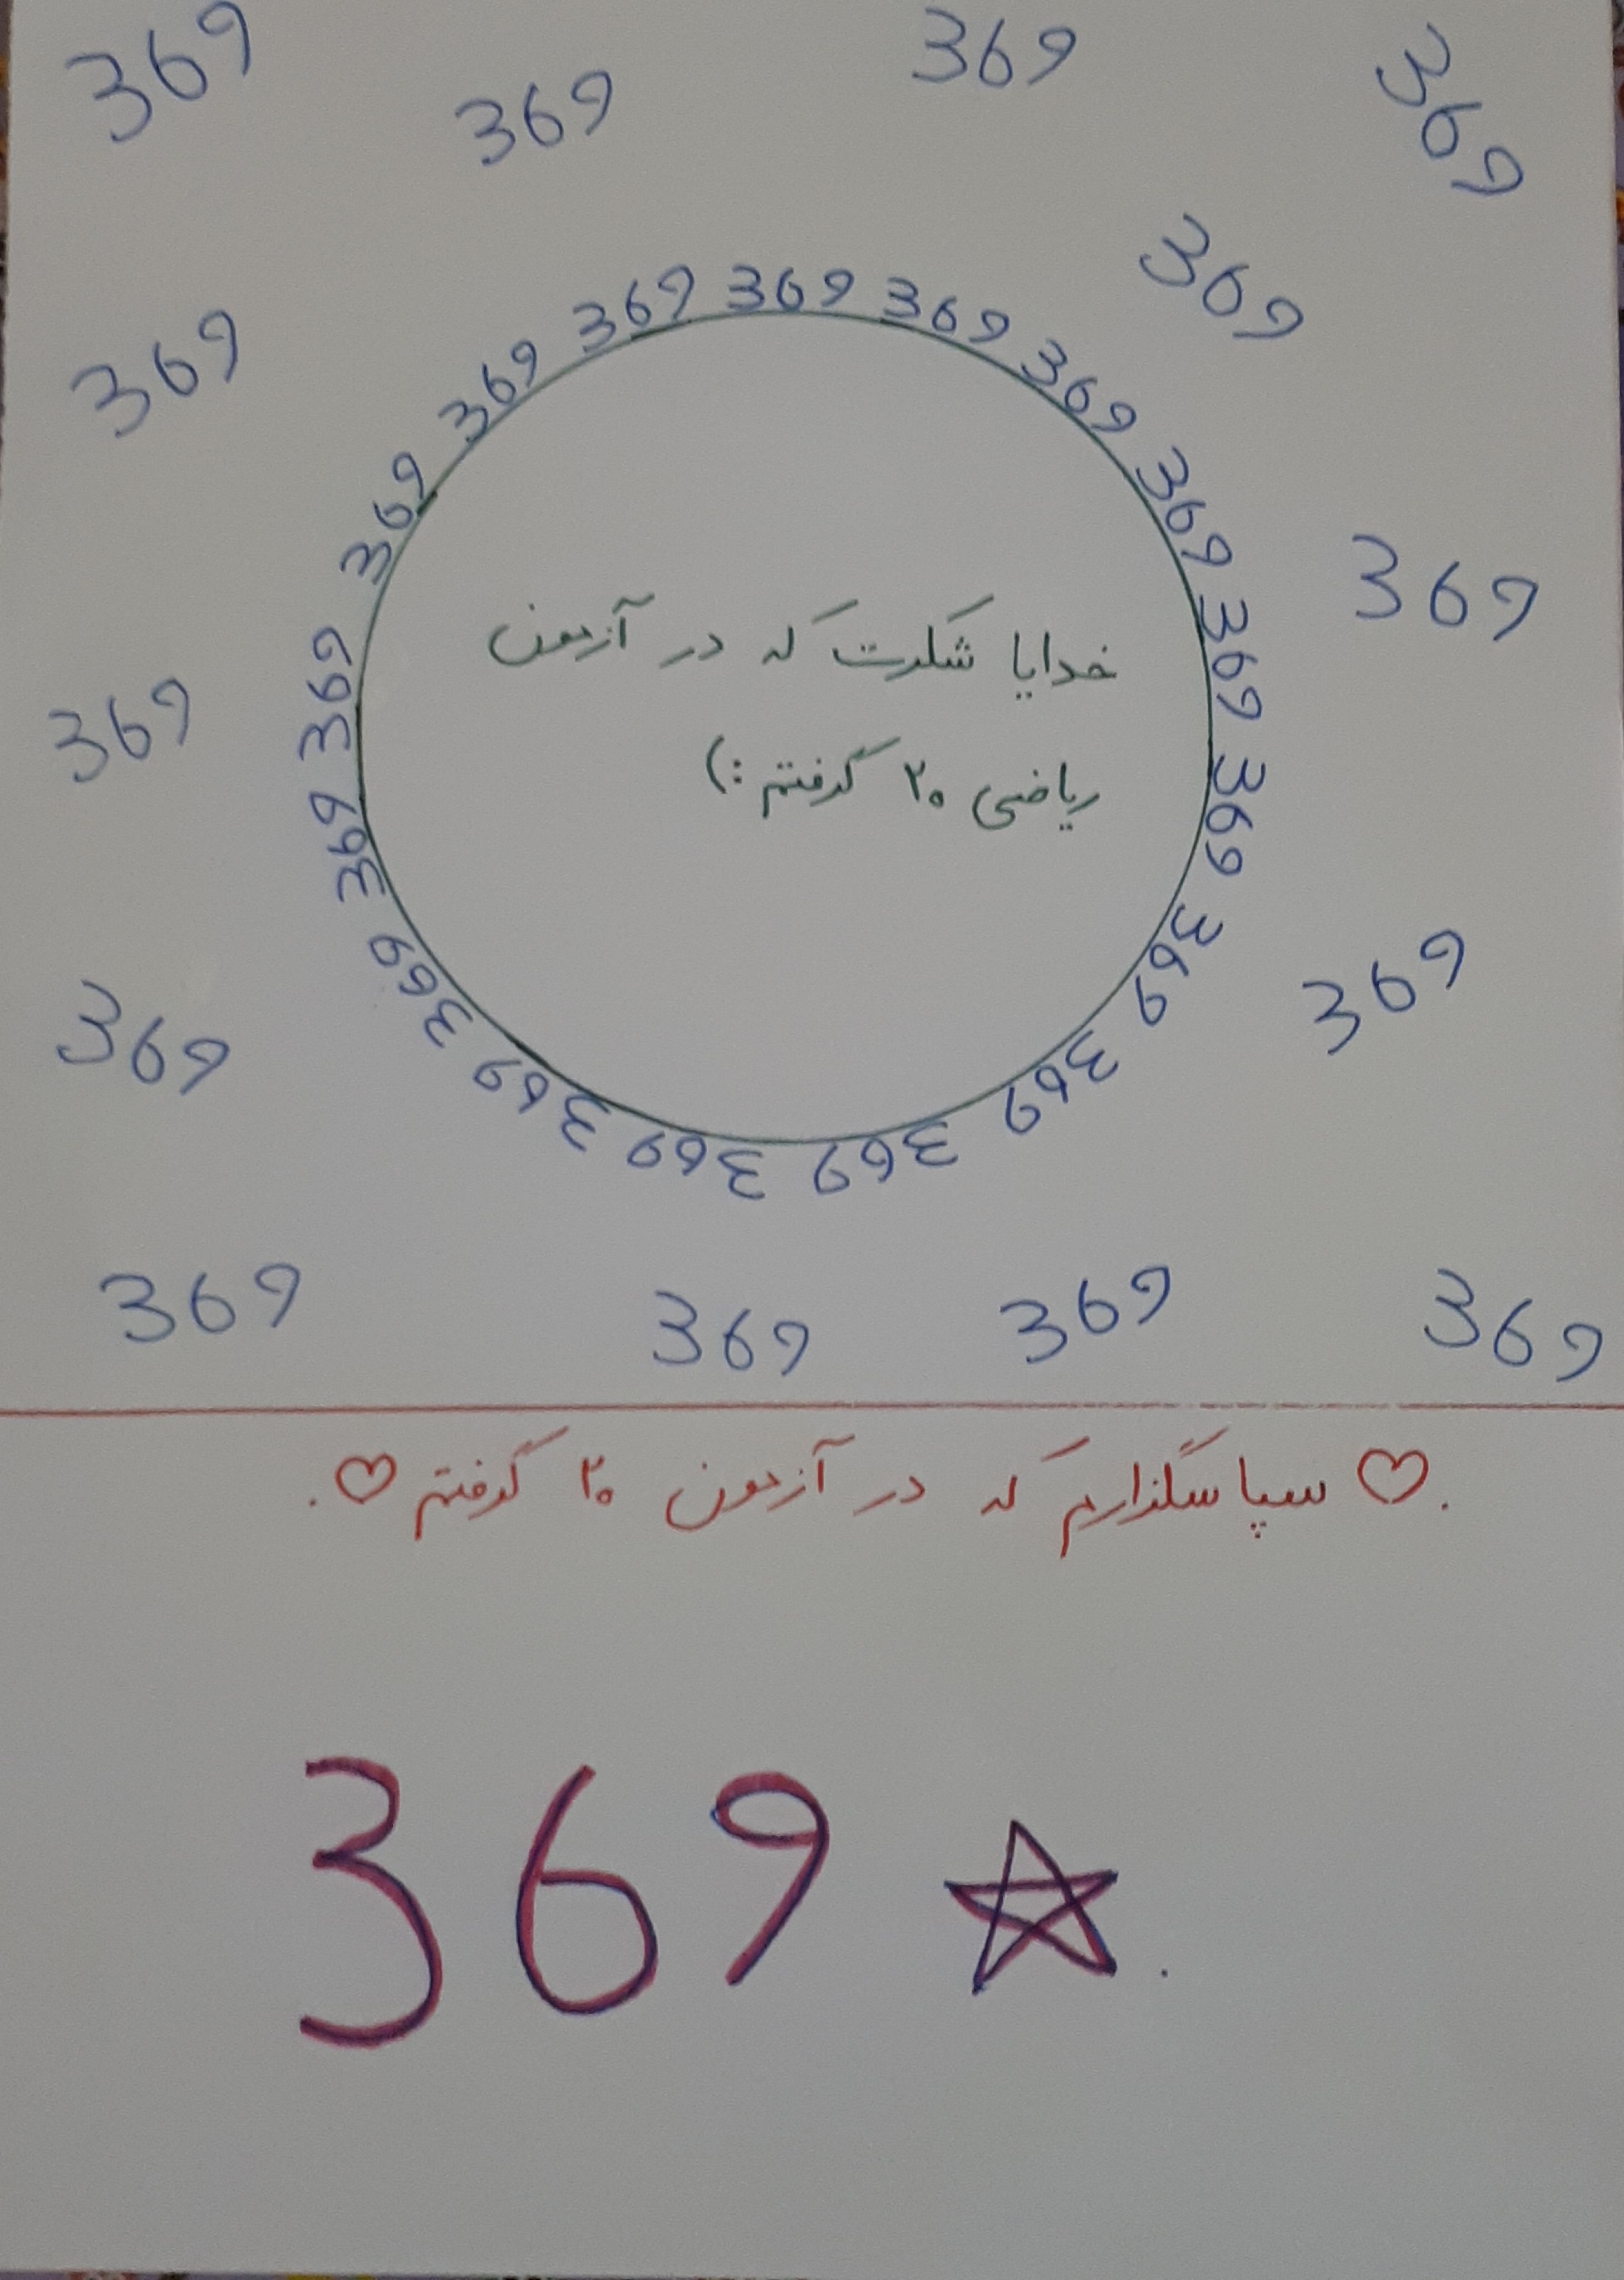 369 369 369 369
369
369
369 369 369
369 369
369 369
369 369
369 369
369 369
خدایا شکرت که در آزمون
ریاضی ۲۰ گرفتم :)
369 369
369 369
369 369
369 369
369 369
369 369 369 369
.♡ سپاسگزارم که در آزمون ۲۰ گرفتم ♡.
369 ☆.